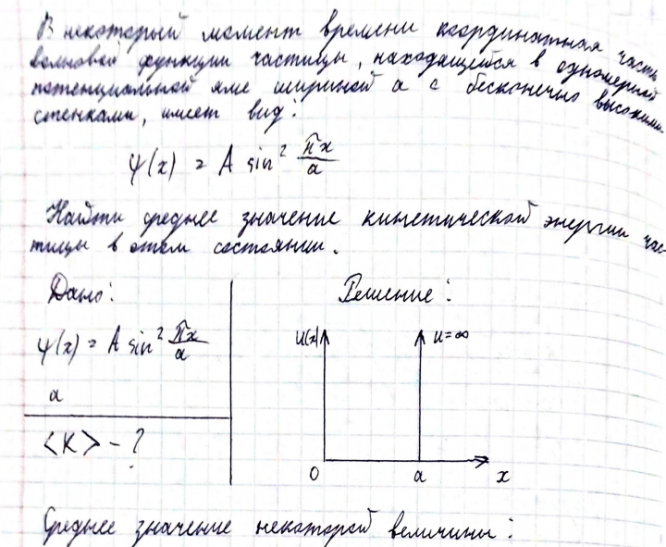 В некоторый момент времени координатная часть
волновой функции частицы, находящейся в одномерной
потенциальной яме шириной a с бесконечно высокими
стенками, имеет вид:
ψ(x) = A sin² πx/a
Найти среднее значение кинетической энергии час-
тицы в этом состоянии.
Дано:
ψ(x) = A sin² πx/a
a
<K> - ?
Решение:
U(x)
U=∞
0
a
x
Среднее значение некоторой величины: